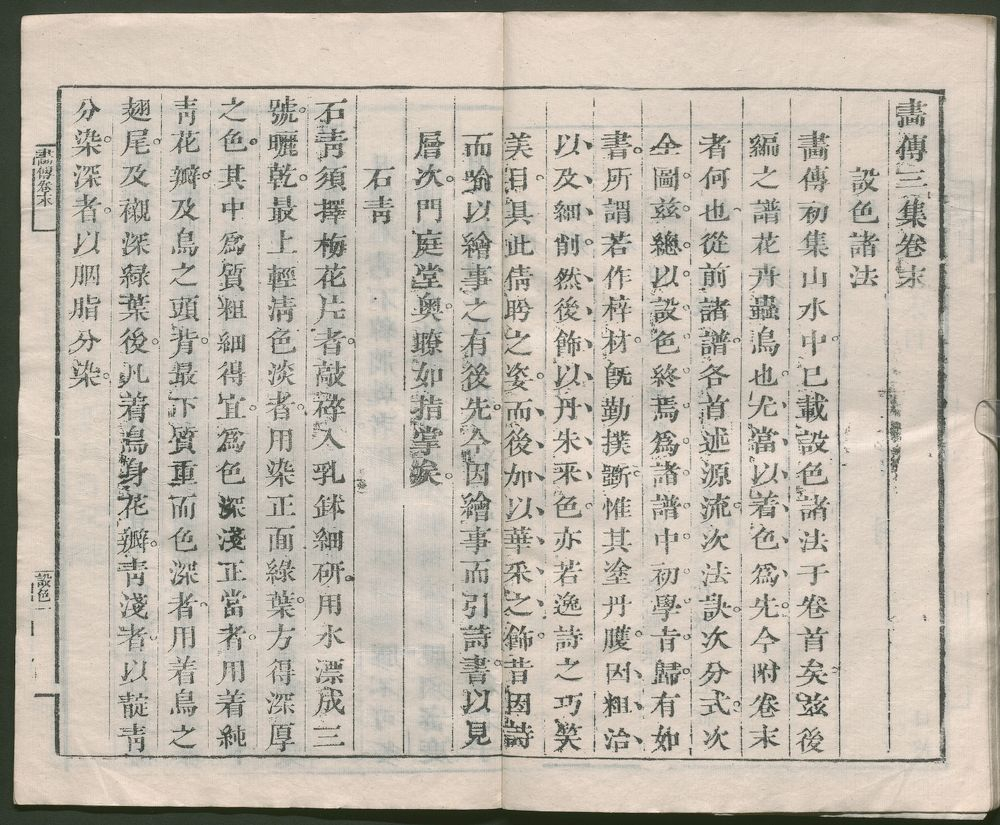 畫傳三集卷末
設色諸法
畫傳初集山水中已載設色諸法于卷首矣。茲後
編之譜花卉蟲鳥也、尤當以着色爲先。今附卷末
者何也。從前諸譜。各首述源流。次法訣。次分式。次
全圖。茲總以設色終焉。爲諸譜中。初學旨歸。有如
書。所謂若作梓材。旣勤撲斲。惟其塗丹雘。因粗、治
以及細、削然後飾以丹朱采色。亦若逸詩之巧笑
美目具此倩盼之姿而後加以華采之飾。昔因詩
而喻以繪事之有後先。今因繪事而引詩書。以見
層次。門庭堂奥。瞭如指掌矣。
石青
石青須擇梅花片者。敲碎入乳鉢細研。用水漂成三
號。曬乾。最上輕清色淡者。用染正面綠葉。方得深厚
之色。其中爲質粗細得宜。爲色深淺正當者。用着純
青花瓣。及鳥之頭背。最下質重而色深者。用着鳥之
翅尾。及襯深緑葉後。凡着鳥身花瓣。青淺者。以靛青
分染。深者。以胭脂分染。
畫傳卷末
設色一